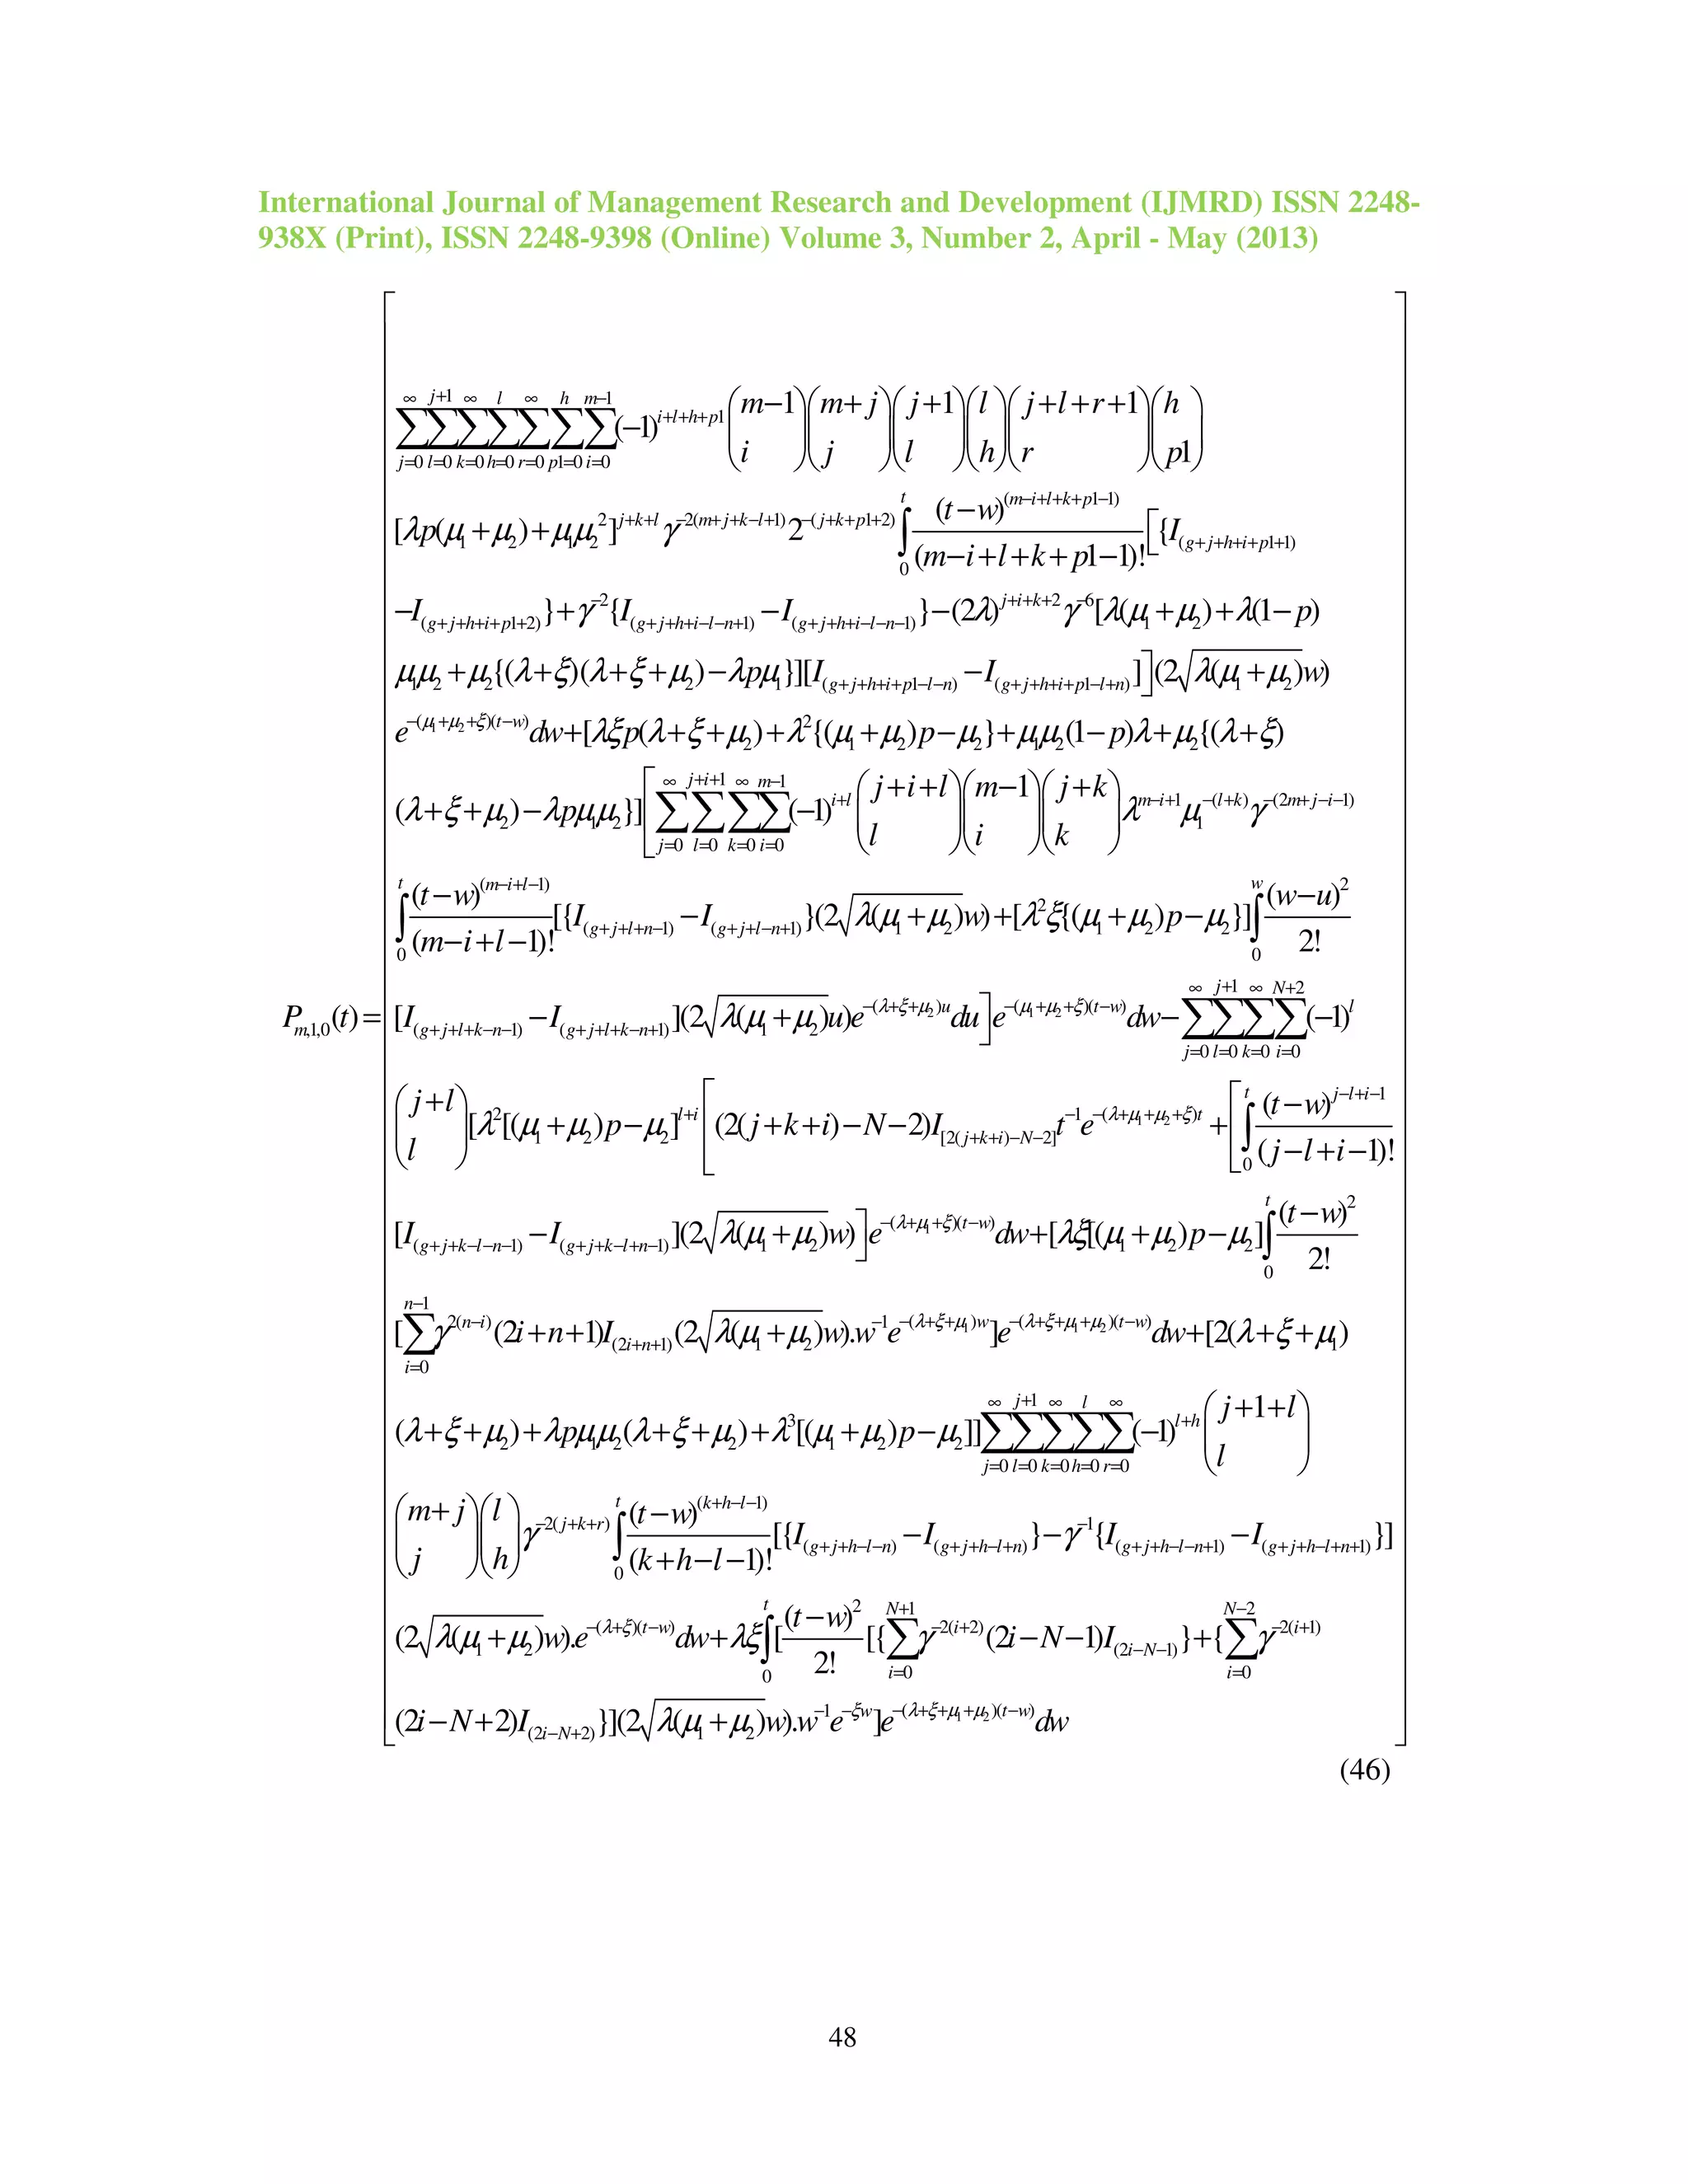 International Journal of Management Research and Development (IJMRD) ISSN 2248-
938X (Print), ISSN 2248-9398 (Online) Volume 3, Number 2, April - May (2013)
\sum_{j=0}^{\infty}\sum_{l=0}^{j+1}\sum_{k=0}^{\infty}\sum_{h=0}^{l}\sum_{r=0}^{\infty}\sum_{p1=0}^{h}\sum_{i=0}^{m-1}(-1)^{i+l+h+p1}\binom{m-1}{i}\binom{m+j}{j}\binom{j+1}{l}\binom{l}{h}\binom{j+l+r+1}{r}\binom{h}{p1}
[\lambda p(\mu_1+\mu_2)+\mu_1\mu_2^2]^{j+k+l}\gamma^{-2(m+j+k-l+1)}2^{-(j+k+p1+2)}\int_0^t\frac{(t-w)^{(m-i+l+k+p1-1)}}{(m-i+l+k+p1-1)!}[\{I_{(g+j+h+i+p1+1)}
-I_{(g+j+h+i+p1+2)}\}+\gamma^{-2}\{I_{(g+j+h+i-l-n+1)}-I_{(g+j+h+i-l-n-1)}\}-(2\lambda)^{j+i+k+2}\gamma^{-6}[\lambda(\mu_1+\mu_2)+\lambda(1-p)
\mu_1\mu_2+\mu_2\{(\lambda+\xi)(\lambda+\xi+\mu_2)-\lambda p\mu_1\}][I_{(g+j+h+i+p1-l-n)}-I_{(g+j+h+i+p1-l+n)}]](2\sqrt{\lambda(\mu_1+\mu_2)}w)
e^{-(\mu_1+\mu_2+\xi)(t-w)}dw+[\lambda\xi p(\lambda+\xi+\mu_2)+\lambda^2\{(\mu_1+\mu_2)p-\mu_2\}+\mu_1\mu_2(1-p)\lambda+\mu_2\{(\lambda+\xi)
(\lambda+\xi+\mu_2)-\lambda p\mu_1\mu_2\}][\sum_{j=0}^{\infty}\sum_{l=0}^{j+i+1}\sum_{k=0}^{\infty}\sum_{i=0}^{m-1}(-1)^{i+l}\binom{j+i+l}{l}\binom{m-1}{i}\binom{j+k}{k}\lambda^{m-i+1}\mu_1^{-(l+k)}\gamma^{-(2m+j-i-1)}
\int_0^t\frac{(t-w)^{(m-i+l-1)}}{(m-i+l-1)!}[\{I_{(g+j+l+n-1)}-I_{(g+j+l-n+1)}\}(2\sqrt{\lambda(\mu_1+\mu_2)}w)+[\lambda^2\xi\{(\mu_1+\mu_2)p-\mu_2\}]\int_0^w\frac{(w-u)^2}{2!}
P_{m,1,0}(t)=[I_{(g+j+l+k-n-1)}-I_{(g+j+l+k-n+1)}](2\sqrt{\lambda(\mu_1+\mu_2)}u)e^{-(\lambda+\xi+\mu_2)u}du]e^{-(\mu_1+\mu_2+\xi)(t-w)}dw-\sum_{j=0}^{\infty}\sum_{l=0}^{j+1}\sum_{k=0}^{\infty}\sum_{i=0}^{N+2}(-1)^l
\binom{j+l}{l}[\lambda^2[(\mu_1+\mu_2)p-\mu_2]^{l+i}[(2(j+k+i)-N-2)I_{[2(j+k+i)-N-2]}t^{-1}e^{-(\lambda+\mu_1+\mu_2+\xi)t}+[\int_0^t\frac{(t-w)^{j-l+i-1}}{(j-l+i-1)!}
[I_{(g+j+k-l-n-1)}-I_{(g+j+k-l+n-1)}](2\sqrt{\lambda(\mu_1+\mu_2)}w)]e^{-(\lambda+\mu_1+\xi)(t-w)}dw+[\lambda\xi[(\mu_1+\mu_2)p-\mu_2]\int_0^t\frac{(t-w)^2}{2!}
[\sum_{i=0}^{n-1}\gamma^{2(n-i)}(2i+n+1)I_{(2i+n+1)}(2\sqrt{\lambda(\mu_1+\mu_2)}w).w^{-1}e^{-(\lambda+\xi+\mu_1)w}]e^{-(\lambda+\xi+\mu_1+\mu_2)(t-w)}dw+[2(\lambda+\xi+\mu_1)
(\lambda+\xi+\mu_2)+\lambda p\mu_1\mu_2(\lambda+\xi+\mu_2)+\lambda^3[(\mu_1+\mu_2)p-\mu_2]]\sum_{j=0}^{\infty}\sum_{l=0}^{j+1}\sum_{k=0}^{\infty}\sum_{h=0}^{l}\sum_{r=0}^{\infty}(-1)^{l+h}\binom{j+1+l}{l}
\binom{m+j}{j}\binom{l}{h}\gamma^{-2(j+k+r)}\int_0^t\frac{(t-w)^{(k+h-l-1)}}{(k+h-l-1)!}[\{I_{(g+j+h-l-n)}-I_{(g+j+h-l+n)}\}-\gamma^{-1}\{I_{(g+j+h-l-n+1)}-I_{(g+j+h-l+n+1)}\}]
(2\sqrt{\lambda(\mu_1+\mu_2)}w).e^{-(\lambda+\xi)(t-w)}dw+\lambda\xi\int_0^t[\frac{(t-w)^2}{2!}[\{\sum_{i=0}^{N+1}\gamma^{-2(i+2)}(2i-N-1)I_{(2i-N-1)}\}+\{\sum_{i=0}^{N-2}\gamma^{-2(i+1)}
(2i-N+2)I_{(2i-N+2)}\}](2\sqrt{\lambda(\mu_1+\mu_2)}w).w^{-1}e^{-\xi w}]e^{-(\lambda+\xi+\mu_1+\mu_2)(t-w)}dw
(46)
48